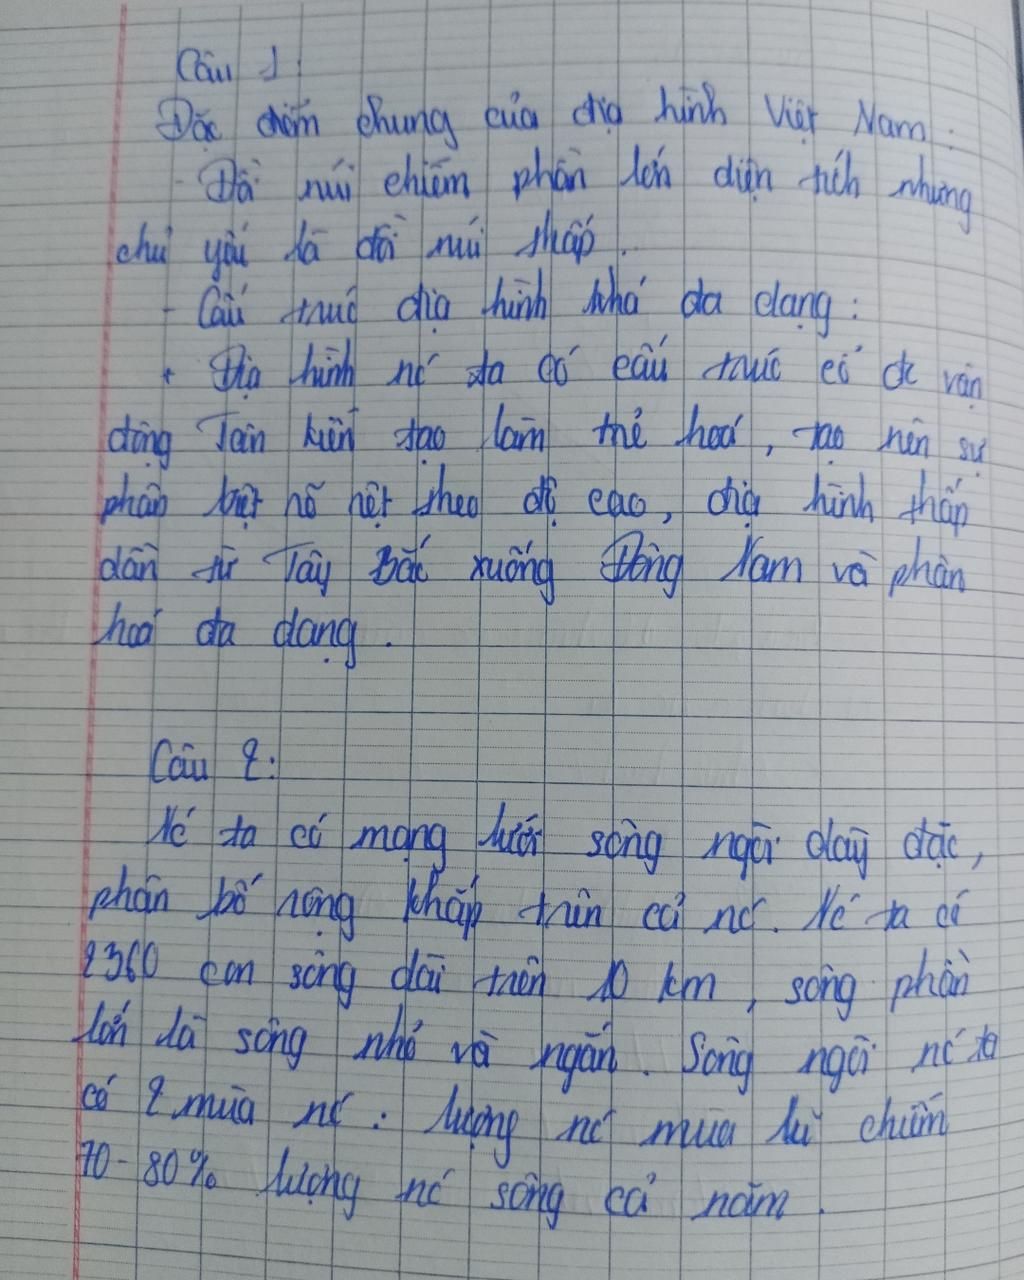 Câu 1:
Đặc điểm chung của địa hình Việt Nam:
- Đồi núi chiếm phần lớn diện tích nhưng
chủ yếu là đồi núi thấp.
- Cấu trúc địa hình khá đa dạng:
+ Địa hình nc ta có cấu trúc cổ đc vận
động Tân kiến tạo làm trẻ hoá, tạo nên sự
phân biệt rõ rệt theo độ cao, địa hình thấp
dần từ Tây Bắc xuống Đông Nam và phân
hoá đa dạng.
Câu 2:
Nc ta có mạng lưới sông ngòi dày đặc,
phân bố rộng khắp trên cả nc. Nc ta có
2360 con sông dài trên 10 km, sông phần
lớn là sông nhỏ và ngắn. Sông ngòi nc ta
có 2 mùa nc: lượng nc mùa lũ chiếm
70-80% lượng nc sông cả năm.